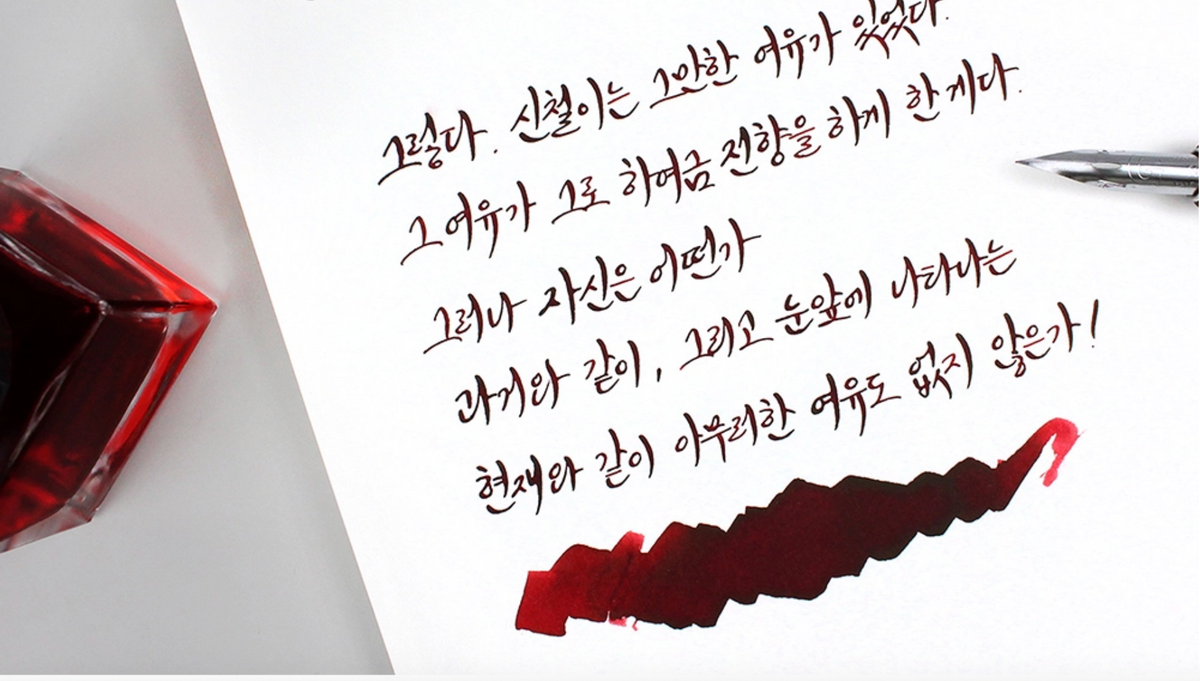 그렇다. 신철이는 그만한 여유가 있었다.
그 여유가 그로 하여금 전향을 하게 한 게다.
그러나 자신은 어떤가
과거와 같이, 그리고 눈앞에 나타나는
현재와 같이 아무러한 여유도 없지 않은가!